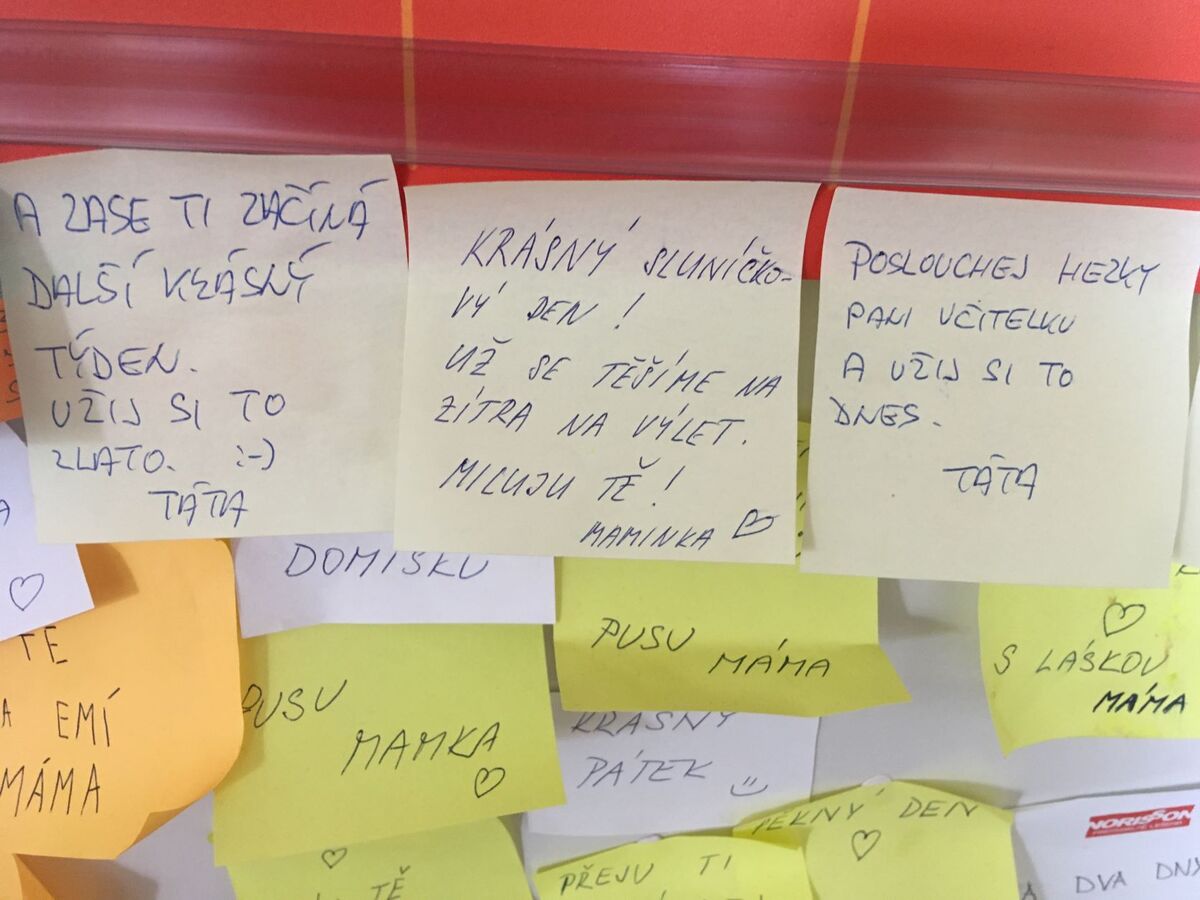 A ZASE TI ZAČÍNÁ
DALŠÍ KRÁSNÝ
TÝDEN.
UŽIJ SI TO
ZLATO. :-)
TÁTA
KRÁSNÝ SLUNÍČKO-
VÝ DEN!
UŽ SE TĚŠÍME NA
ZÍTRA NA VÝLET.
MILUJU TĚ!
MAMINKA ♡
POSLOUCHEJ HEZKY
PANI UČITELKU
A UŽIJ SI TO
DNES.
TÁTA
♡
TĚ
A EMÍ
MÁMA
DOMISKU
PUSU
MAMKA
♡
PUSU
MÁMA
♡
S LÁSKOU
MÁMA
KRÁSNÝ
PÁTEK
♡
TĚ
PŘEJU TI
PĚKNÝ DEN
♡
NORISSON
A DVA DNY